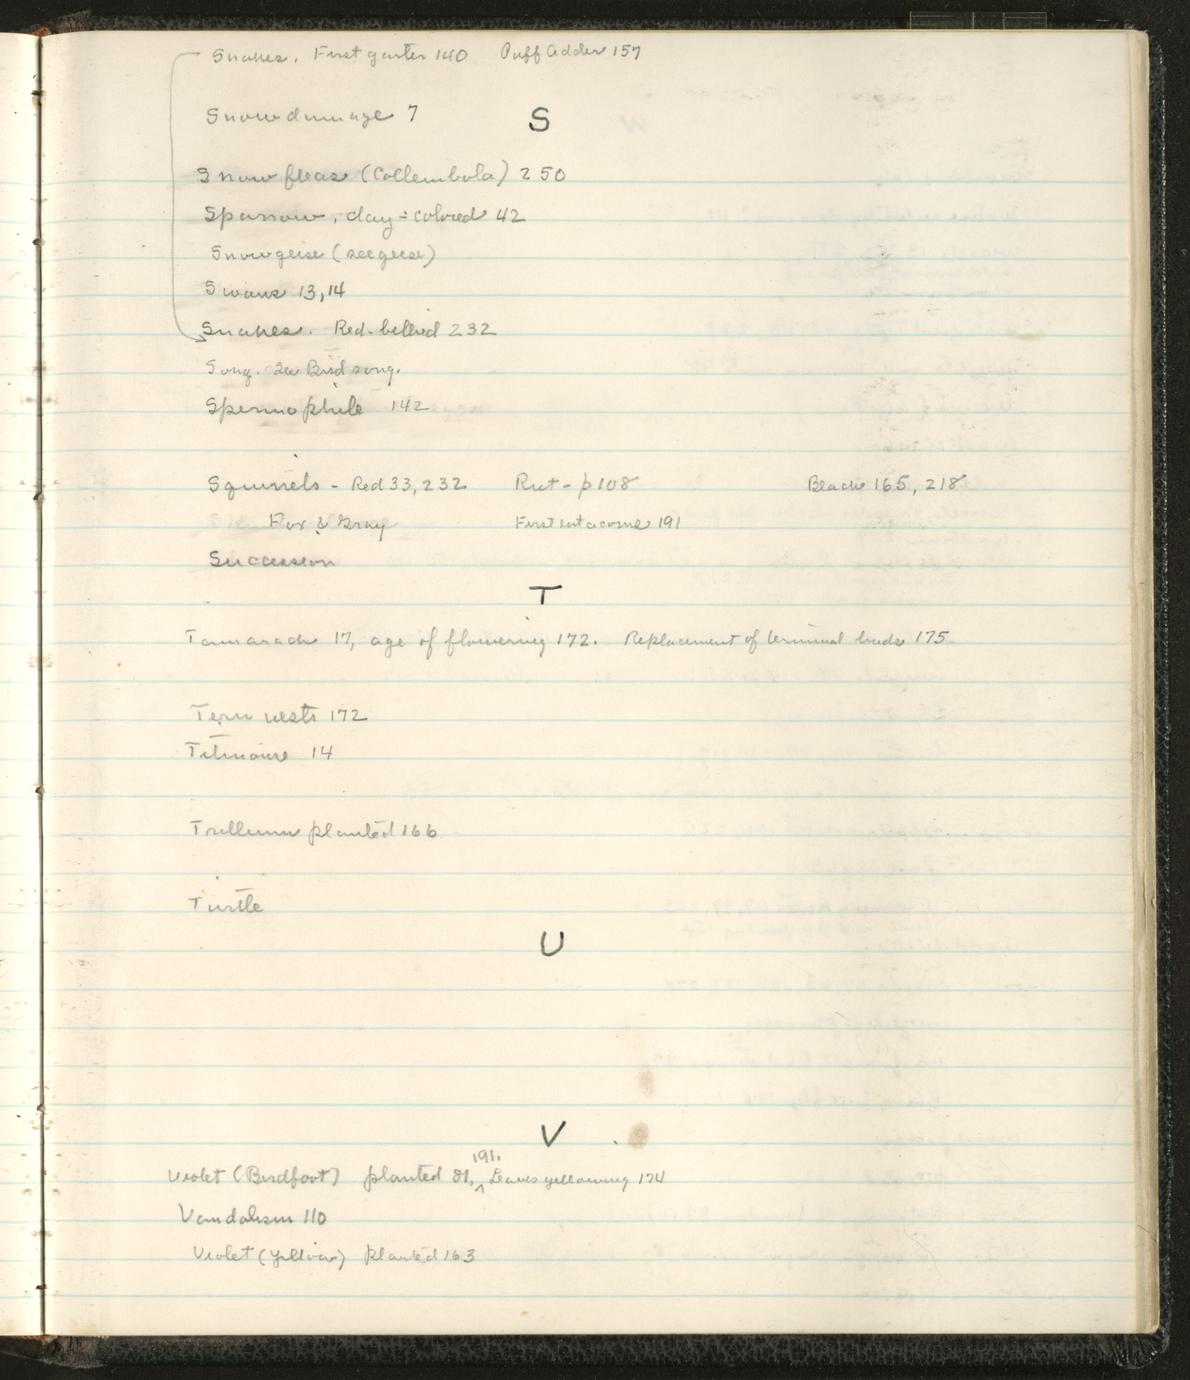 Snakes. First garter 140 Puff Adder 157
Snow damage 7
S
Snow fleas (Collembola) 250
Sparrow, clay-colored 42
Snow geese (see geese)
Swans 13, 14
Snakes. Red-bellied 232
Song. See Bird song.
Spermophile 142
Squirrels - Red 33, 232 Rut - p 108 Black 165, 218
Fox & Gray First cut acorns 191
Succession
T
Tamarack 17, age of flowering 172. Replacement of terminal buds 175
Tern nests 172
Titmouse 14
Trillium planted 166
Turtle
U
V
191.
Violet (Birdfoot) planted 81, ^ Leaves yellowing 174
Vandalism 110
Violet (Yellow) planted 163